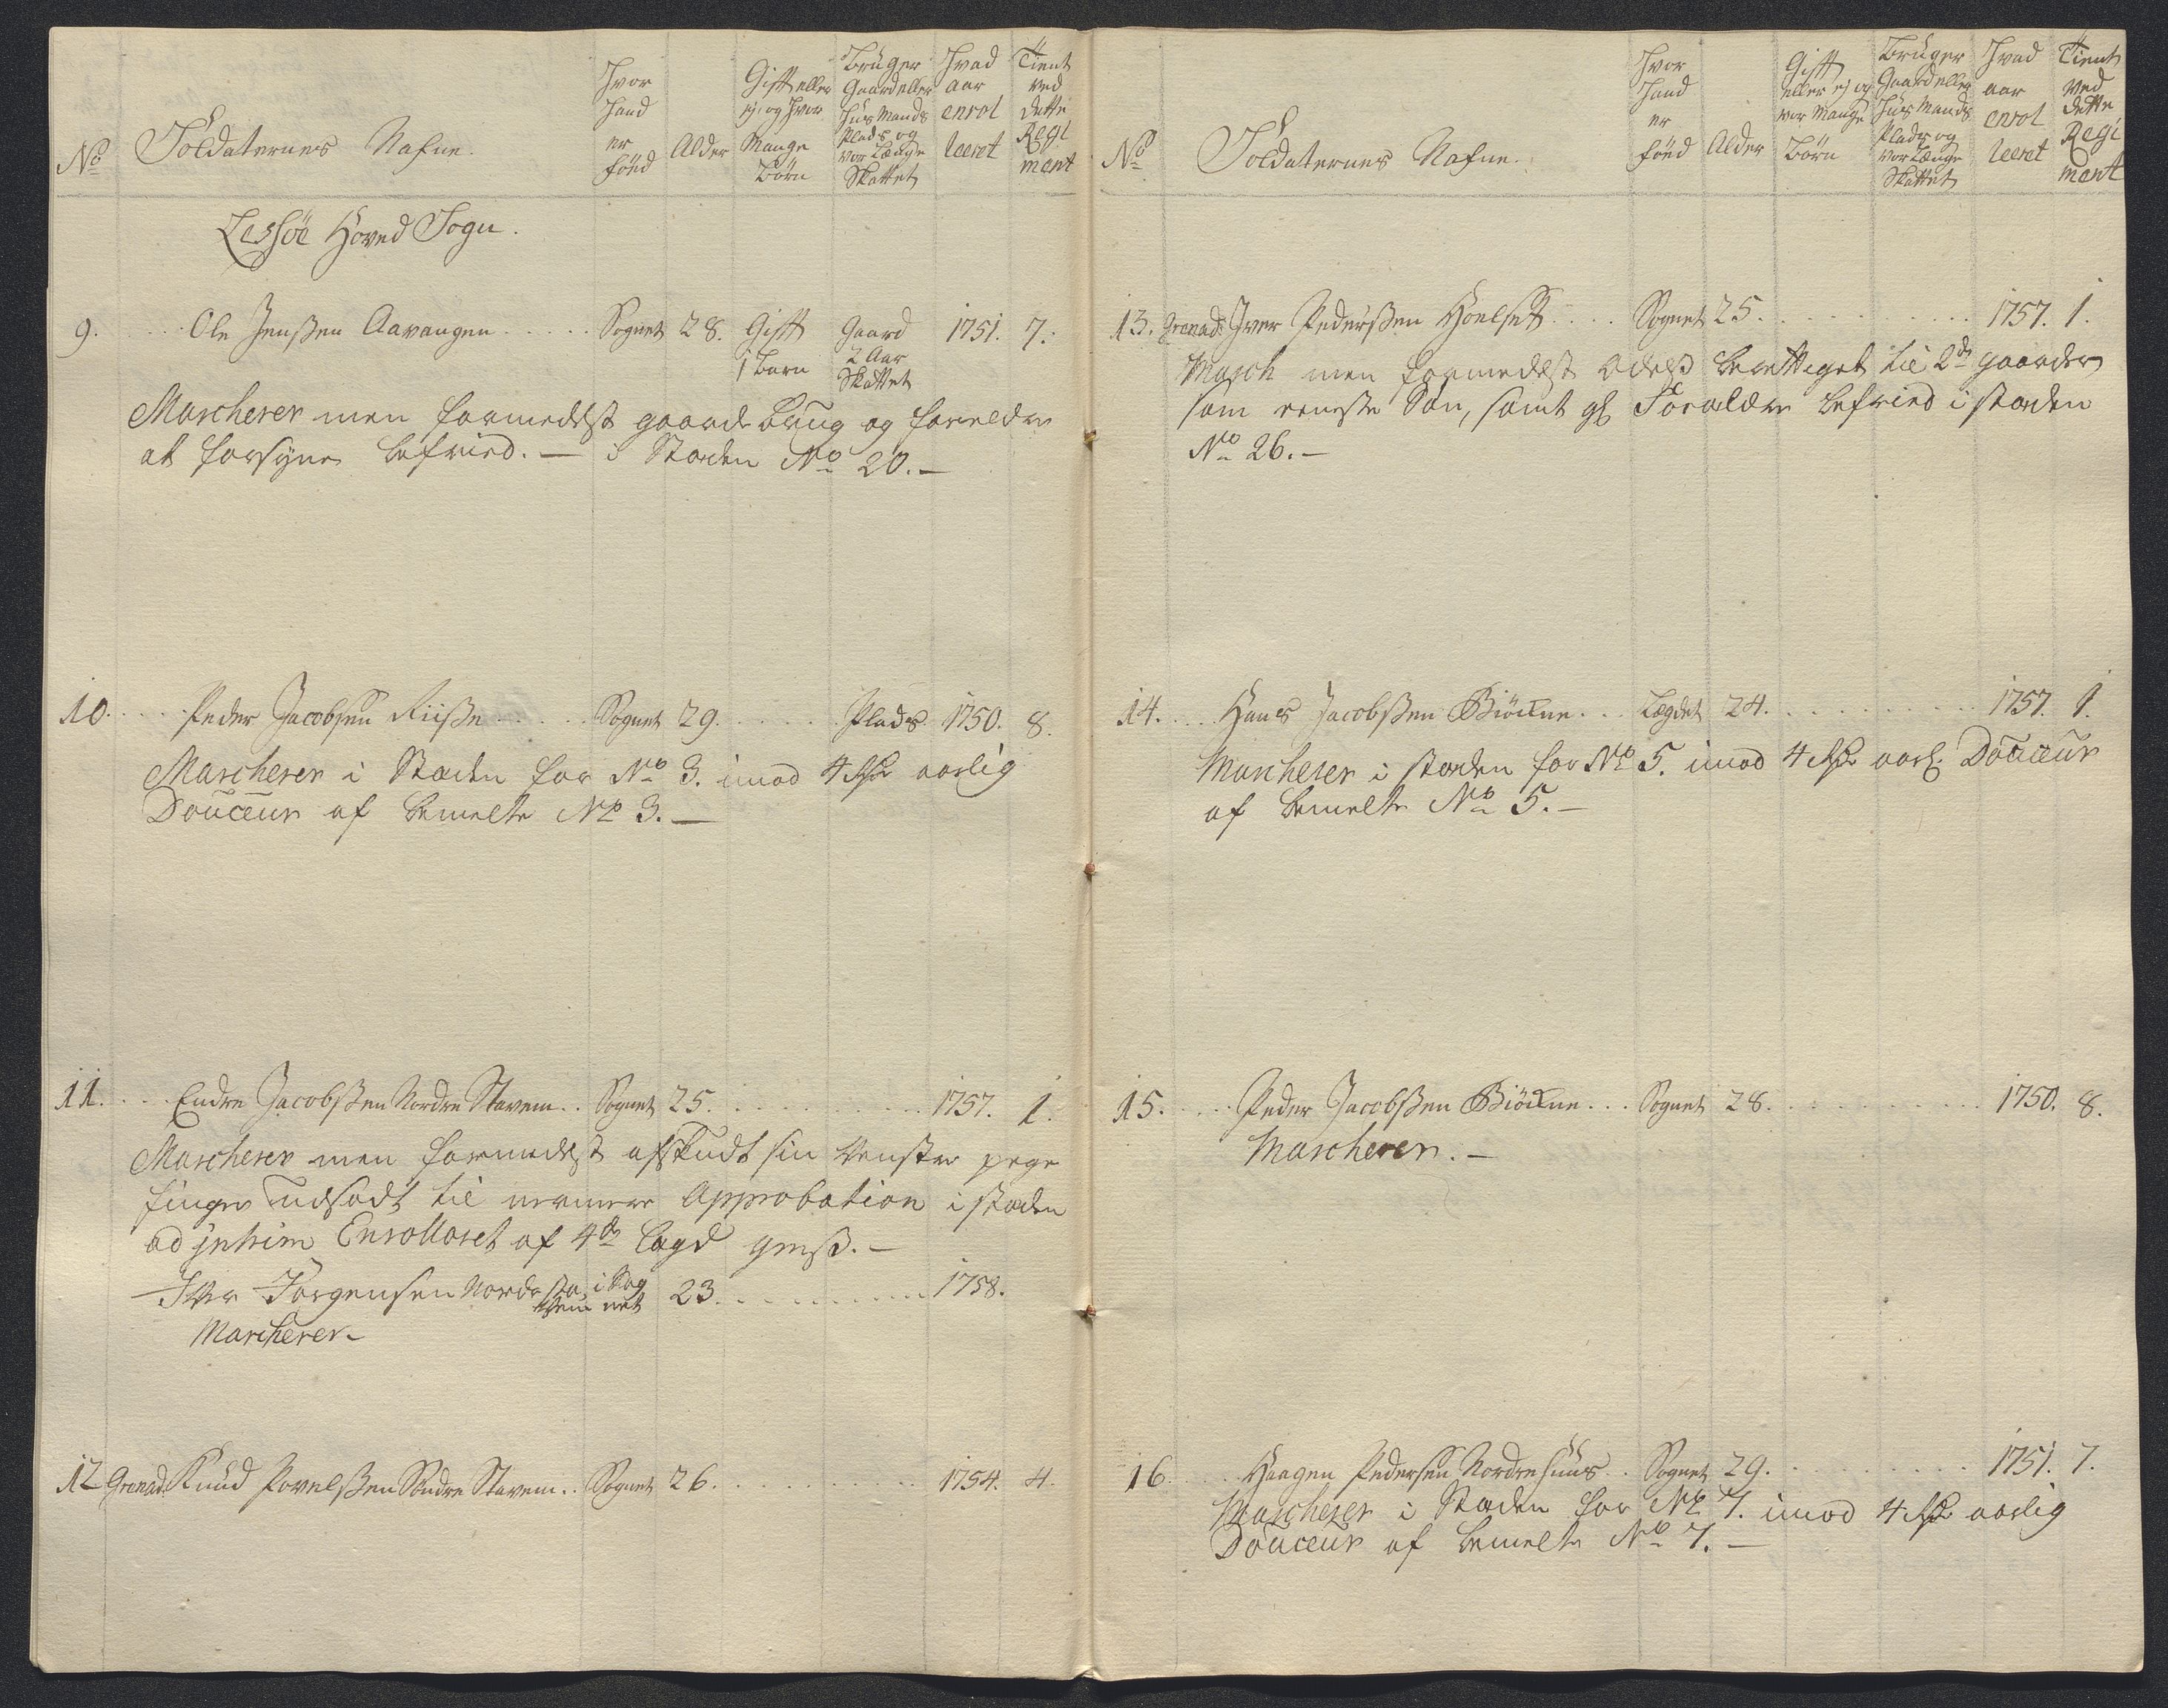 No
Soldaternes Nafne.
Hvor
Hand
er
föed
Alder
Gift eller
ej og Hvor
Mange
Börn
Bruger
Gaard eller
Huus Mands
Plads og
vor Længe
Skattet
Hvad
aar
enrol
leeret
Tient
ved
dette
Regi
ment
Lessöe Hoved Sogn.
9. Ole Jenßen Aavangen Sognet 28. Gift Gaard 1751. 7.
1 Barn 2 Aar
Skattet
Marcherer men formedelst gaards brug og forældre
at forsyne befried. — i Staden No 20. —
10. Peder Jacobsen Riiße Sognet 29. Plads 1750. 8.
Marcherer i Staden for No 3. imod 4 Rdr aarlig
Douceur af bemelte No 3. —
11. Endre Jacobßen Nordre Stavem Sognet 25. 1757. 1.
Marcherer men formedelst afskudt sin venster pege
finger udsadt til nermere Approbation i staden
ad interim Enrolleret af 4de Lægd
Iver Jörgensen Nordre Sta i Sog 23. 1758.
vem net
Marcherer
12 Grenad. Knud Povelßen Söndre Stavem Sognet 26. 1754. 4.
No
Soldaternes Nafne.
Hvor
Hand
er
föed
Alder
Gift
eller ej og
vor Mange
Börn
Bruger
Gaard eller
Huus Mands
Plads og
vor Længe
Skattet
Hvad
aar
enrol
leeret
Tient
ved
dette
Regi
ment
13. Grenad. Iver Pederßen Hoelset Sognet 25. 1757. 1.
Masch men formedelst Odels berettiget til 2de gaarder
som eeneste Sön, samt gl Forældre befried i staden
No 26. —
14. Hans Jacobßen Biöckne Lægdet 24. 1757. 1.
Marcherer i staden for No 5. imod 4 Rdr aarl. Douceur
af bemelte No 5. —
15. Peder Jacobßen Biöckne Sognet 28. 1750. 8.
Marcherer. —
16. Haagen Pedersen Nordre Huus Sognet 29. 1751. 7.
Marcherer i Staden for No 7. imod 4 Rdr aarlig
Douceur af bemelte No 7. —